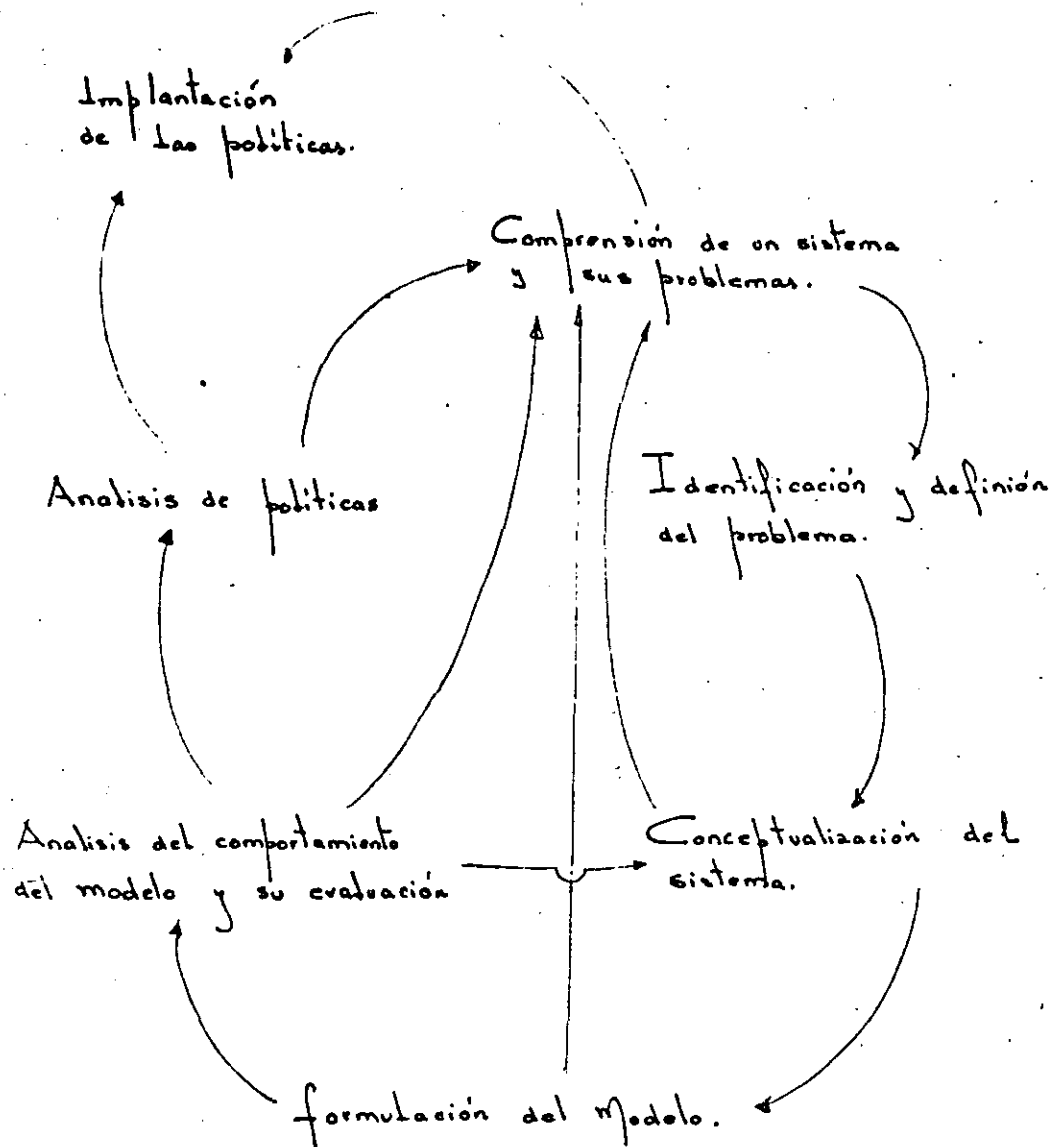 Implantación
de las políticas.
Comprensión de un sistema
y sus problemas.
Analisis de políticas
Identificación y definión
del problema.
Analisis del comportamiento
del modelo y su evaluación
Conceptualización del
sistema.
formulación del Modelo.